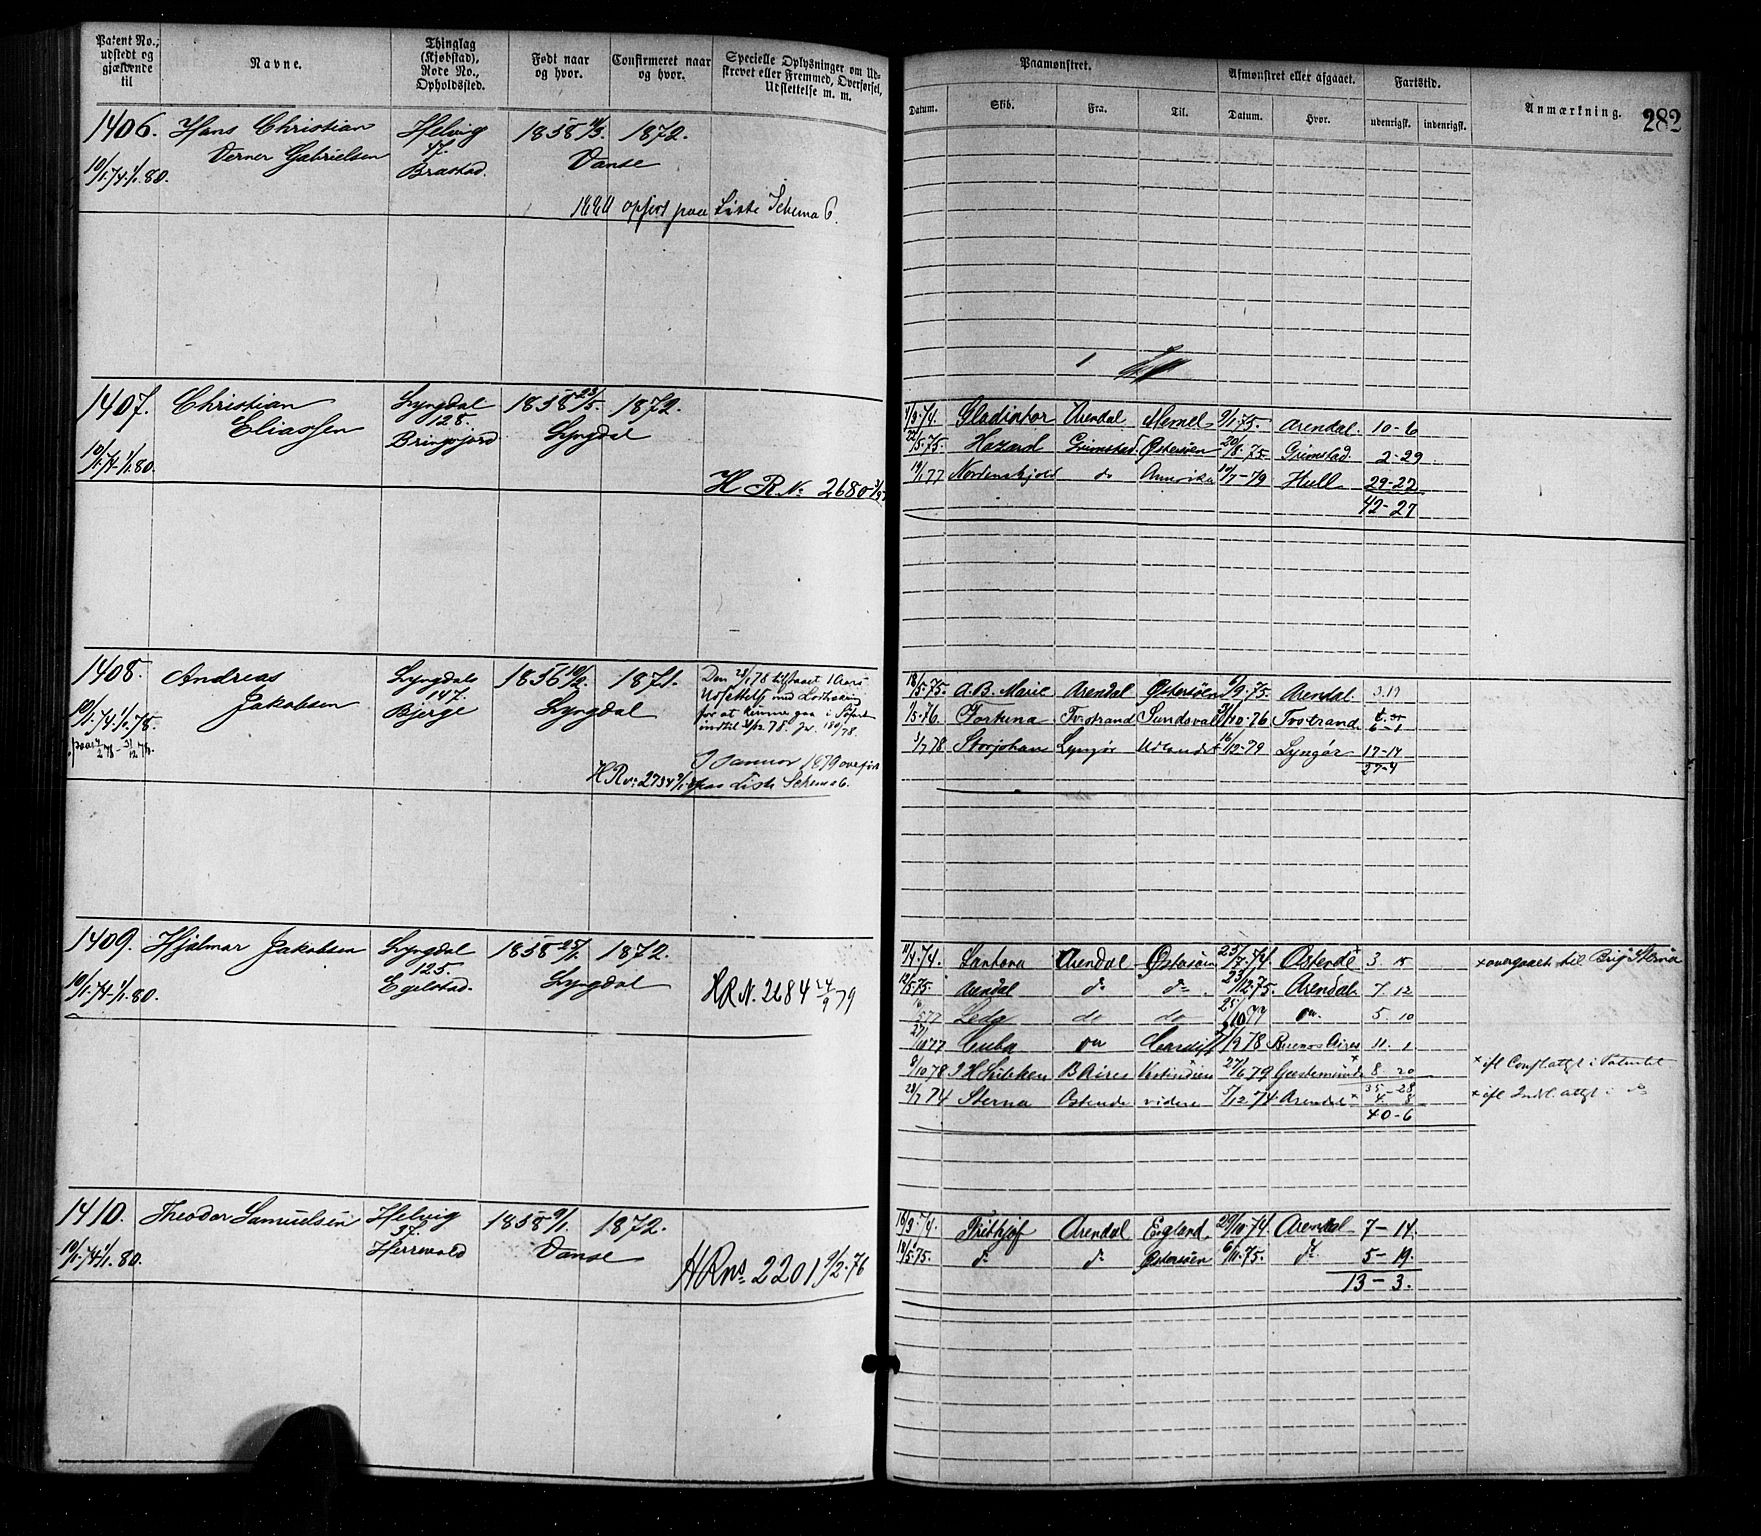 Patent No., udstedt og gjældende til
Navne.
Thinglag (Kjøbstad), Rode No., Opholdssted.
Født naar og hvor.
Confirmeret naar og hvor.
Specielle Oplysninger om Udskrevet eller Fremmed, Overførsel, Udslettelse m. m.
Paamønstret.
Afmønstret eller afgaaet.
Fartstid.
Anmærkning. 282
Datum. Skib. Fra. Til. Datum. Hvor. udenrigst. indenrigst.
1406. Hans Christian Helvig 1858 1872.
Verner Gabrielsen 47. Vanse
10/1.74-1/1.80. Brastad.
opført paa Liste Schema 6.
1407. Christian Lyngdal 1858 23/5. 1872.
Eliassen 128. Lyngdal
10/1.74-1/1.80. Bringsjord
H R. No 2680
1/9.74. Gladiator Arendal Memel 9/1.75. Arendal. 10-6
22/5.75. Hazard Grimstad. Østersøen 20/8.75 Grimstad. 2-29
19/1.77 Nordenskjold do Amerika 10/7-79 Hull 29-22
42-27
1408. Andreas Lyngdal 1856 10/2. 1871.
Jakobsen 147. Lyngdal
10/1.74-1/1.78. Bjerge
Den 28/1 78 tilstaaet 1 Aars
Udsættelse med
for at kunne gaa i
indtil 31/12 78. Jr. 180/78.
Januar 1879 overført
H R No 2734 paa Liste Schema 6.
18/5.75. A. B. Marie Arendal Østersøen 9/9.75. Arendal 3.19
1/5-76 Fortuna Tvestrand Sundsvall 31/10-76 Tvestrand 6-1
3/7 78 Storjohann Lyngør Udlandet 16/12-79 Lyngør 17-14
27-4
1409. Hjalmar Jakobsen Lyngdal 1858 25/1. 1872.
125. Lyngdal
10/1.74-1/1.80. Egelstad.
H R N. 2684 24/9 79
11/4.74. Santona Arendal Østersøen 25/7.74. Ostende 3 15 × overgaaet til Brig Sterna
12/5.75. Arendal do do 23/12.75. Arendal 7 12
16/5 77 Leda do do 25/10 77 do 5 10
27/10 77 Cuba do Cardiff 78 Buenos Aires 11. 1
9/10 78 B Aires Vestindien 27/6 79 Geestemünde 8 20
35-28
28/7 74 Sterna Ostende videre 5/12.74. Arendal × 4. 8
40-6
1410. Theodor Samuelsen Helvig 1858 9/1. 1872.
37. Vanse
10/1.74-1/1.80. Herrevold
H R no. 2201 9/2-76
16/9.74. Frithjof Arendal England 29/10.74. Arendal 7-14.
10/5.75. do do Østersøen 6/11.75. do 5-19.
13-3.